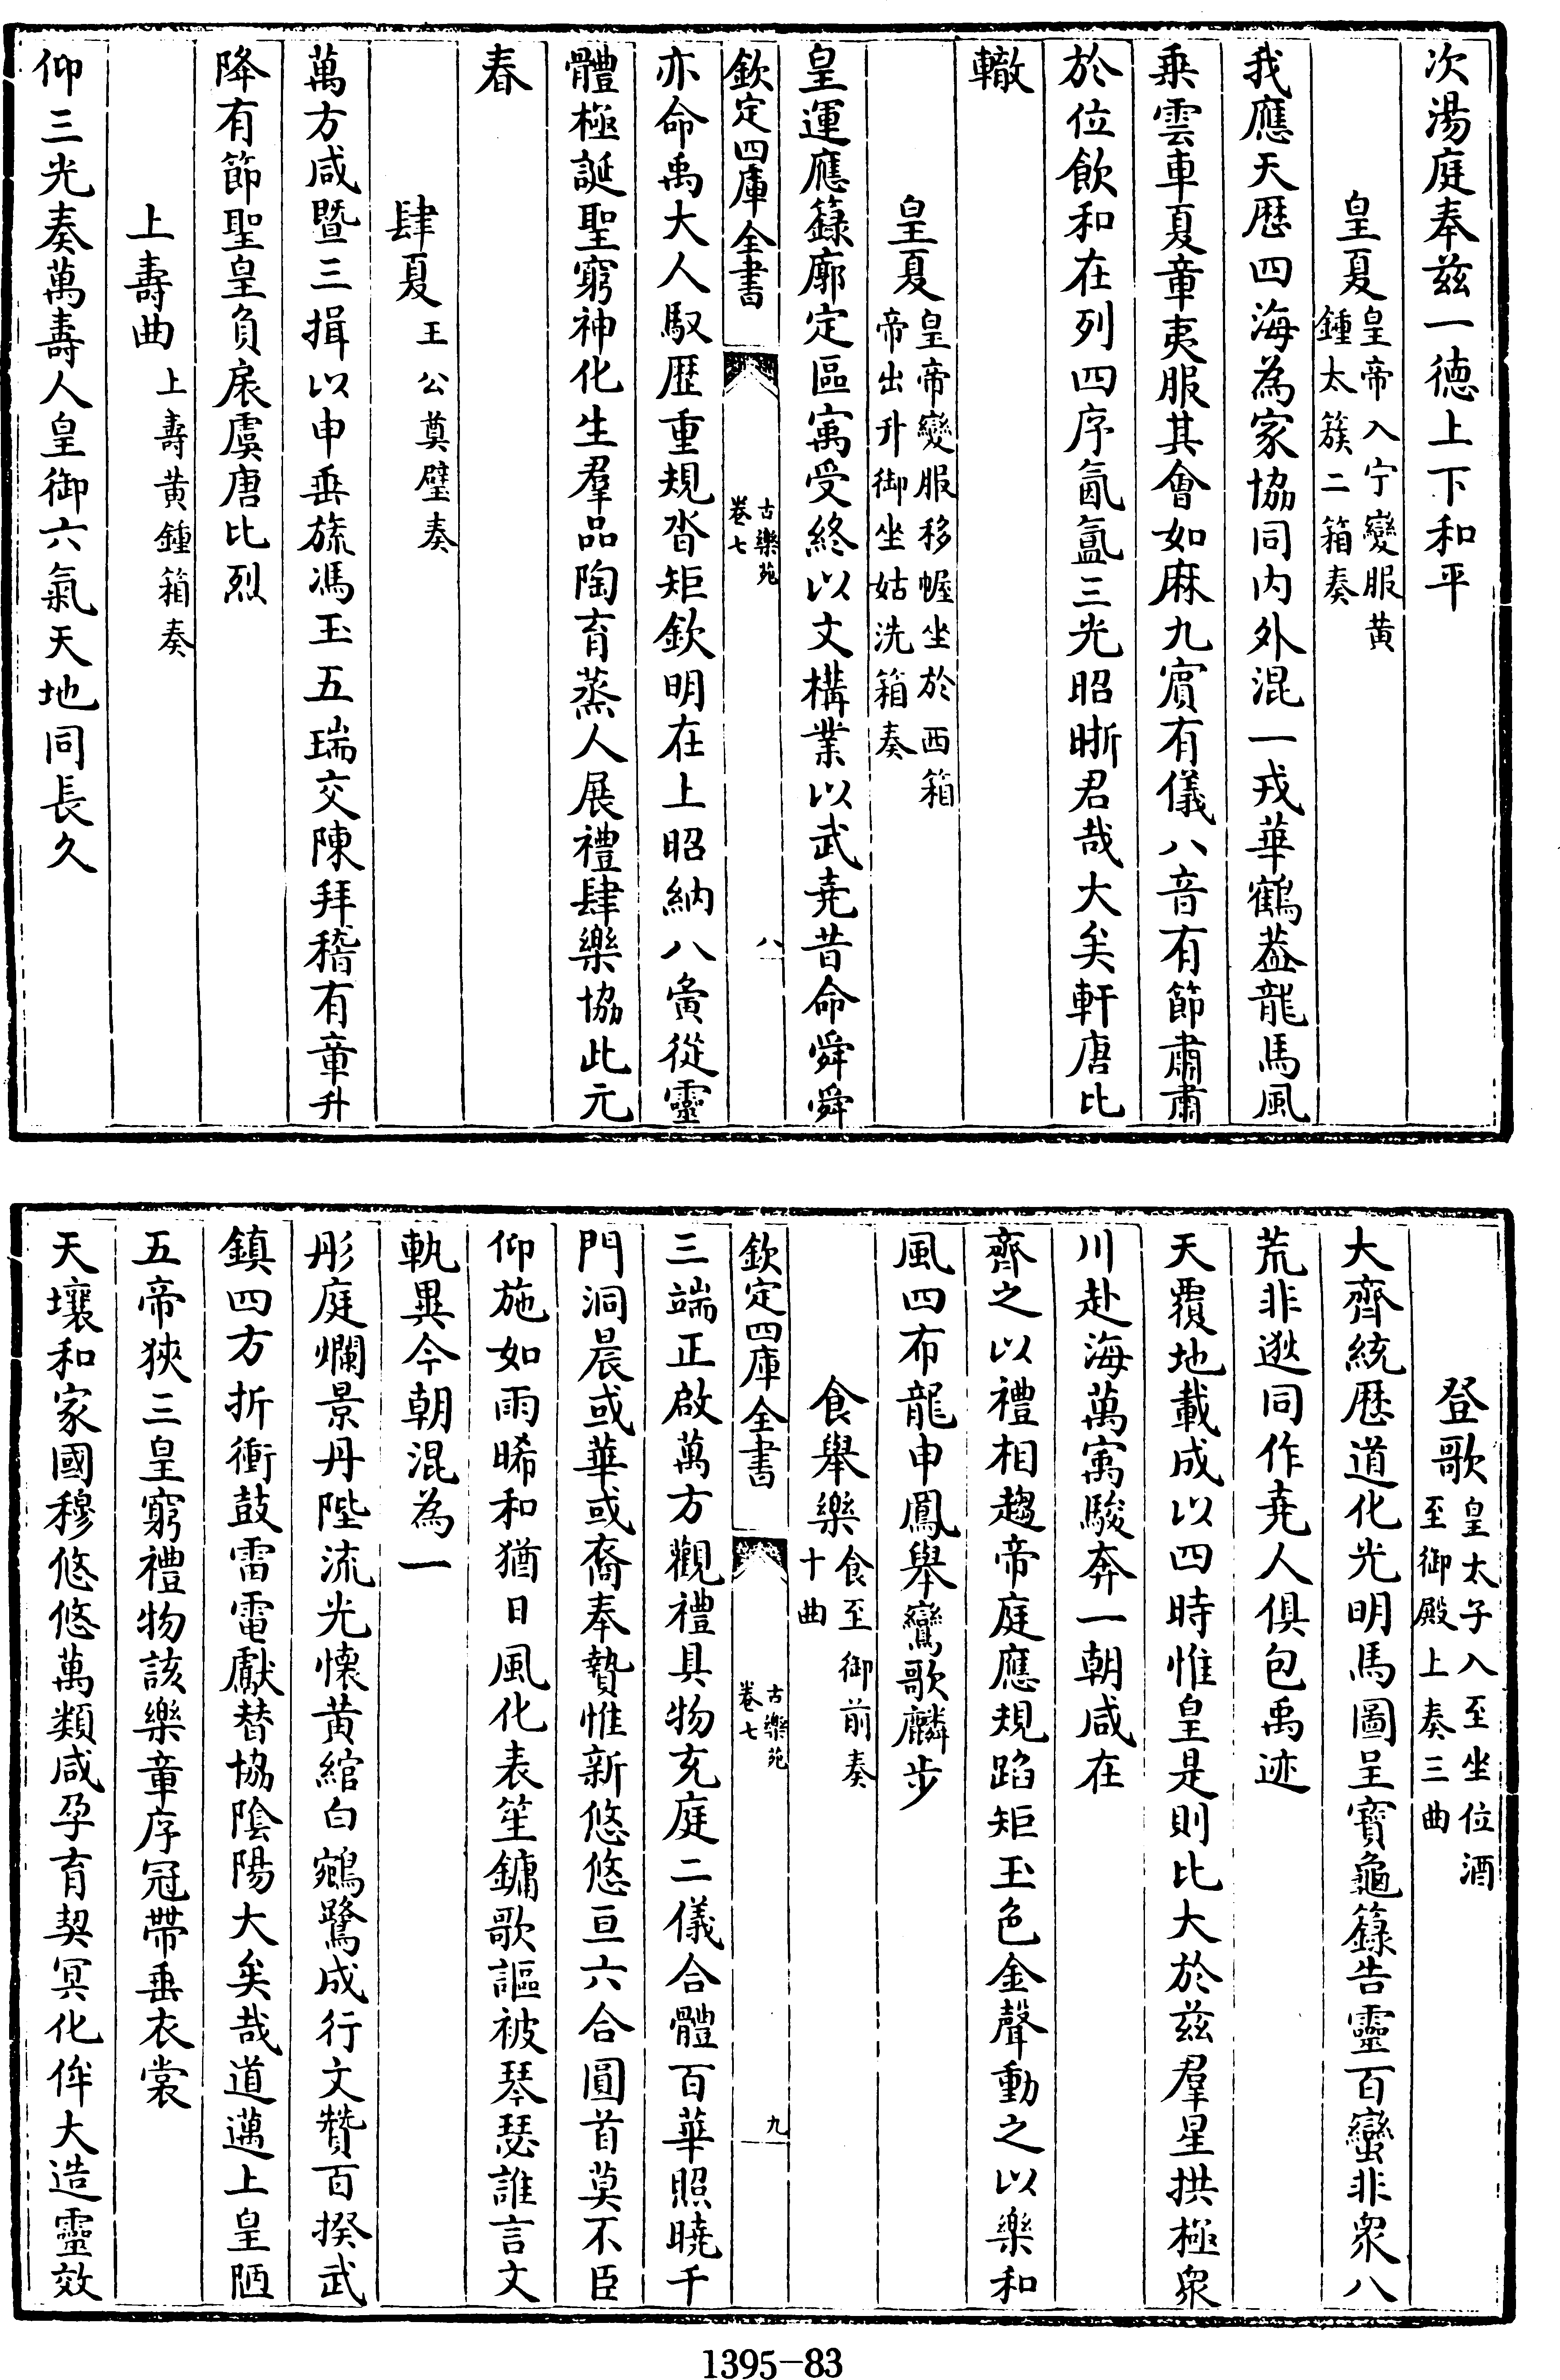 次湯庭奉兹一徳上下和平
皇夏皇帝入宁變服黄
鍾太簇二箱奏
我應天歴四海為家協同内外混一戎華鶴葢龍馬風
乗雲車夏章夷服其會如麻九賔有儀八音有節肅肅
於位飲和在列四序氤氳三光昭晰君哉大矣軒唐比
轍
皇夏皇帝變服移幄坐於西箱
帝出升御坐姑洗箱奏
皇運應籙廓定區寓受終以文構業以武堯昔命舜舜
欽定四庫全書
古樂苑
卷七
八
亦命禹大人馭歴重規沓矩欽明在上昭納八夤從靈
體極誕聖窮神化生羣品陶育蒸人展禮肆樂協此元
春
肆夏王公奠璧奏
萬方咸暨三揖以申垂旒馮玉五瑞交陳拜稽有章升
降有節聖皇負扆虞唐比烈
上壽曲上壽黄鍾箱奏
仰三光奏萬壽人皇御六氣天地同長久
登歌皇太子入至坐位酒
至御殿上奏三曲
大齊統歴道化光明馬圖呈寳龜籙告靈百蠻非衆八
荒非逖同作堯人俱包禹迹
天覆地載成以四時惟皇是則比大於兹羣星拱極衆
川赴海萬寓駿奔一朝咸在
齊之以禮相趨帝庭應規蹈矩玉色金聲動之以樂和
風四布龍申鳳舉鸞歌麟步
食舉樂食至御前奏
十曲
欽定四庫全書
古樂苑
卷七
九
三端正啟萬方觀禮具物充庭二儀合體百華照曉千
門洞晨或華或裔奉贄惟新悠悠亘六合圓首莫不臣
仰施如雨晞和猶日風化表笙鏞歌謳被琴瑟誰言文
軌異今朝混為一
彤庭爛景丹陛流光懐黄綰白鵷鷺成行文贊百揆武
鎮四方折衝鼓雷電獻替協陰陽大矣哉道邁上皇陋
五帝狹三皇窮禮物該樂章序冠帶垂衣裳
天壤和家國穆悠悠萬類咸孕育契冥化侔大造靈效
1395-83